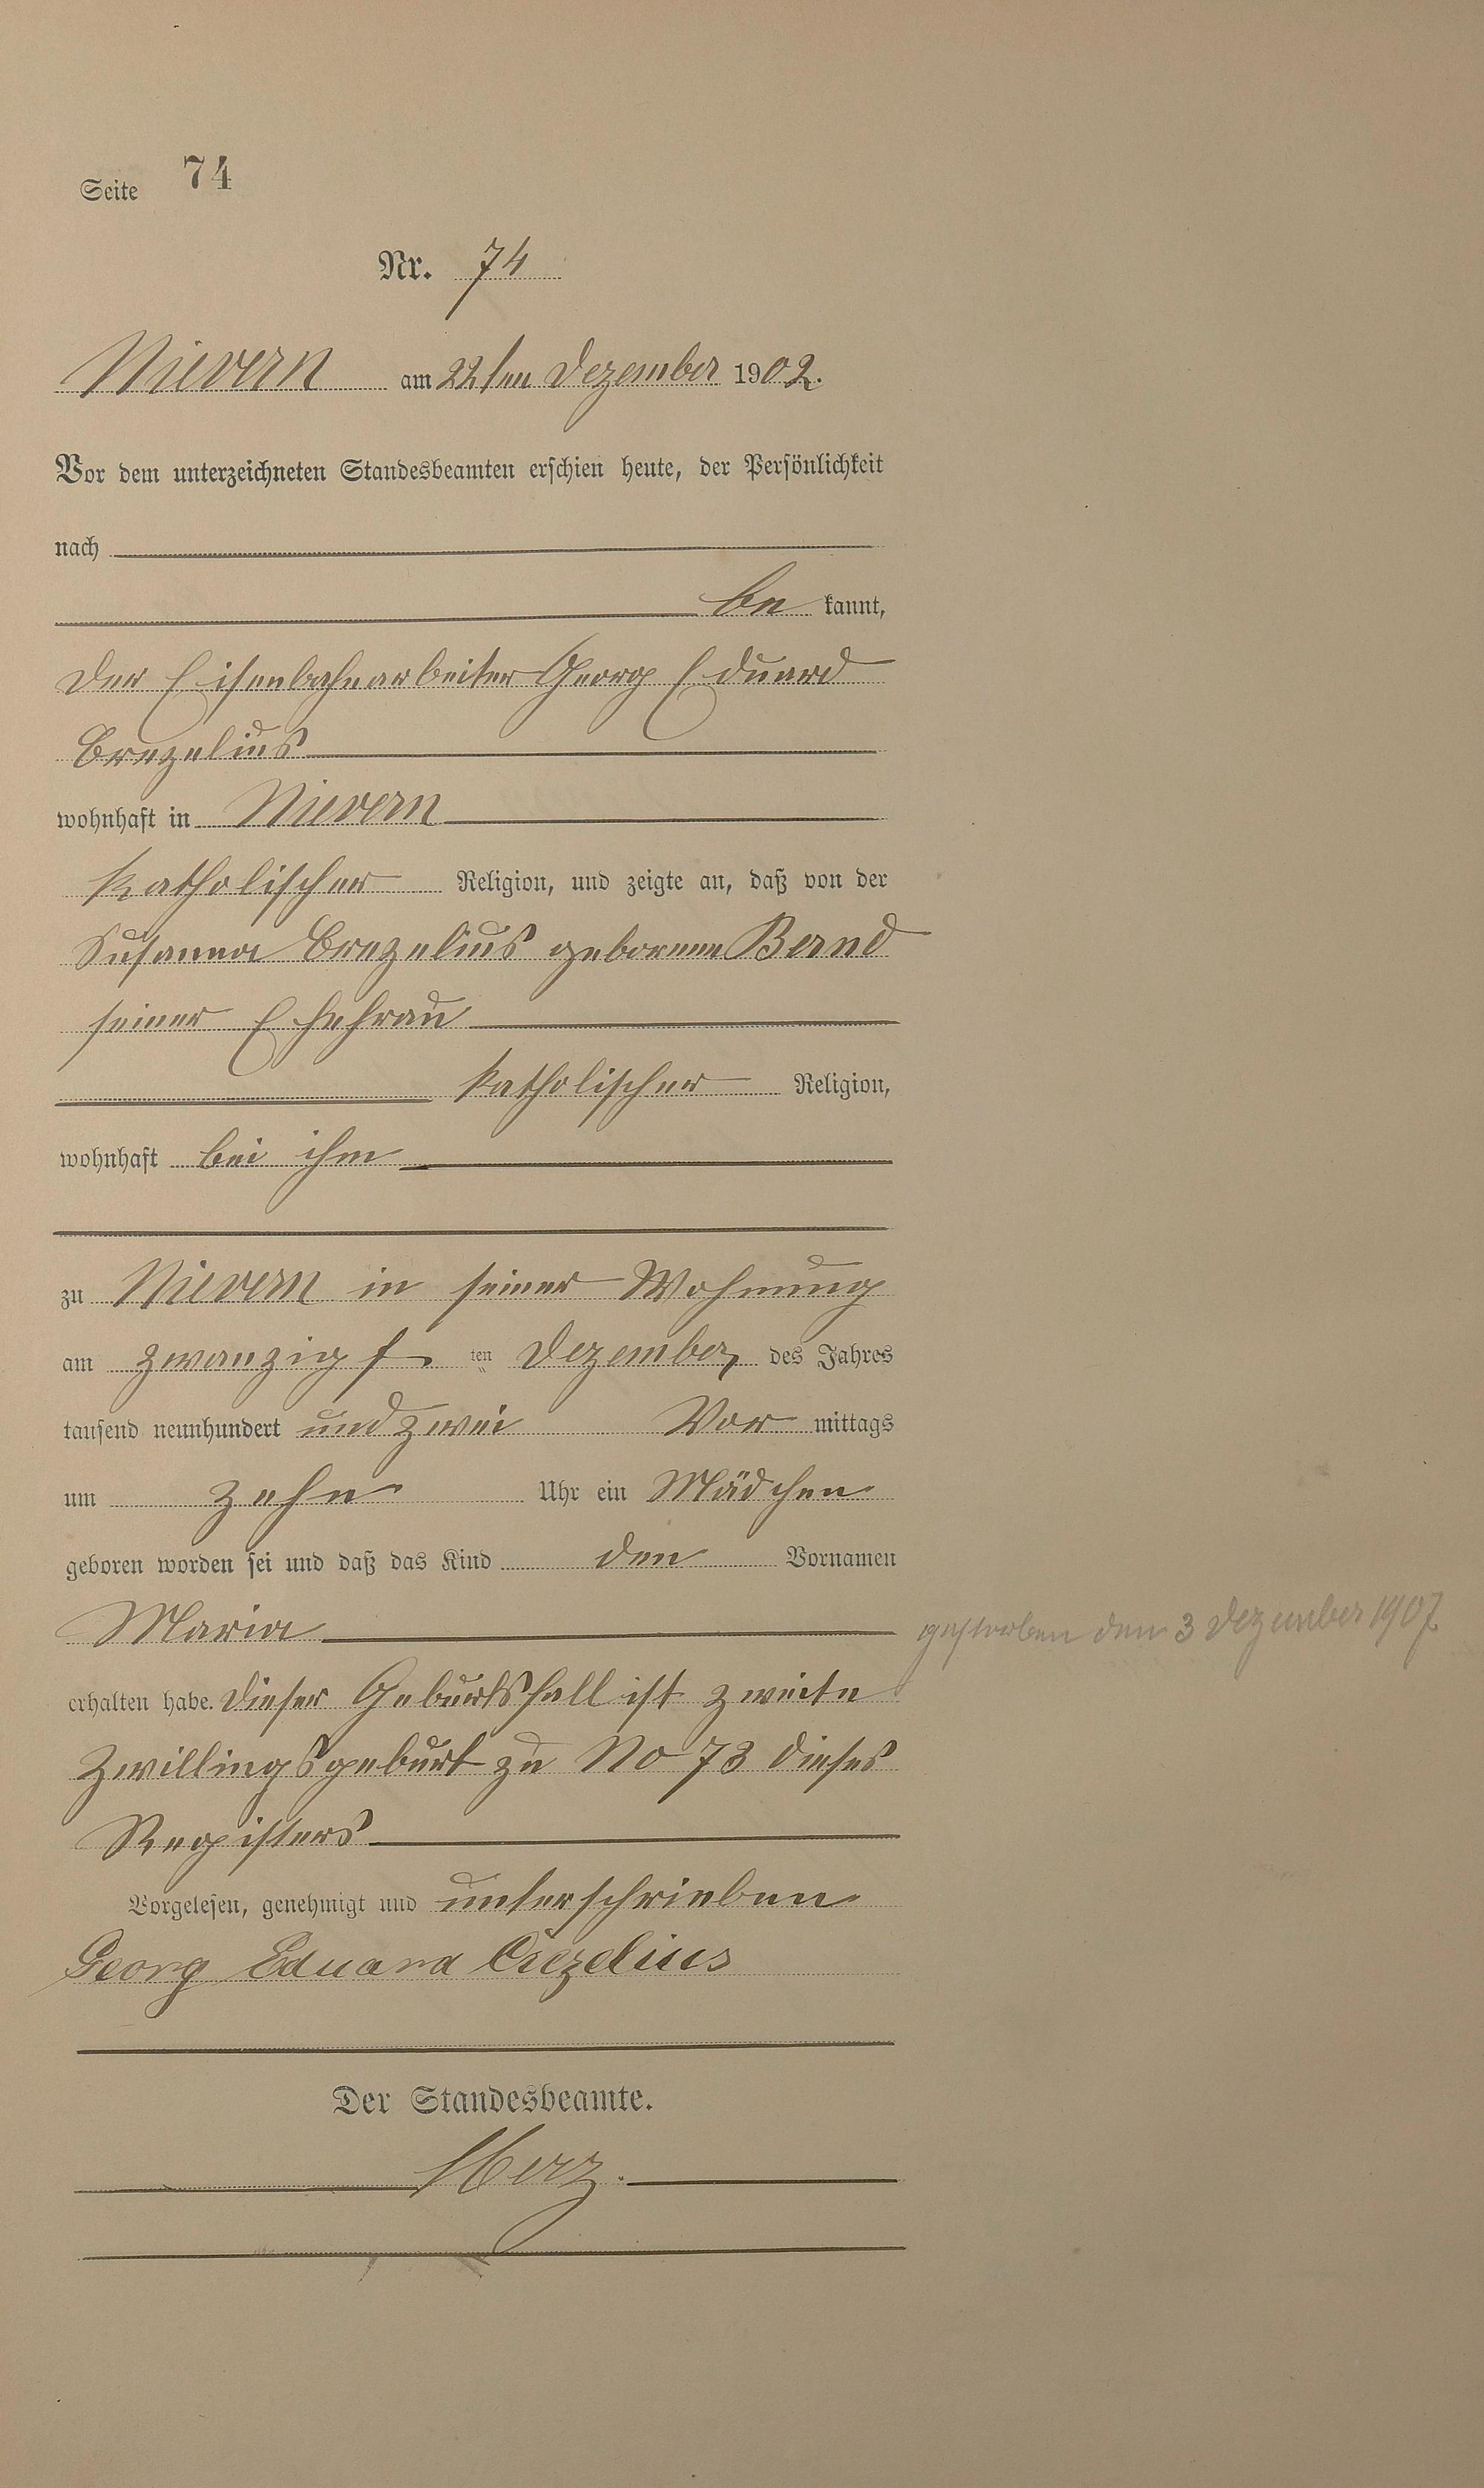 Seite 74
Nr. 74
Nievern am 22ten Dezember 1902.
Vor dem unterzeichneten Standesbeamten erschien heute, der Persönlichkeit
nach
be kannt,
der Eisenbahnarbeiter Georg Eduard
Crezelius
wohnhaft in Nievern
katholischer Religion, und zeigte an, daß von der
Susanna Crezelius geborene Bernd
seiner Ehefrau
katholischer Religion,
wohnhaft bei ihm
zu Nievern in seiner Wohnung
am zwanzigs ten Dezember des Jahres
tausend neunhundert und zwei Vor mittags
um zehn Uhr ein Mädchen
geboren worden sei und daß das Kind den Vornamen
Maria
gestorben den 3 Dezember 1907
erhalten habe. Dieser Geburtsfall ist zweite
Zwillingsgeburt zu No 73 dieses
Registers
Vorgelesen, genehmigt und unterschrieben
Georg Eduard Crezelius
Der Standesbeamte.
Herz.